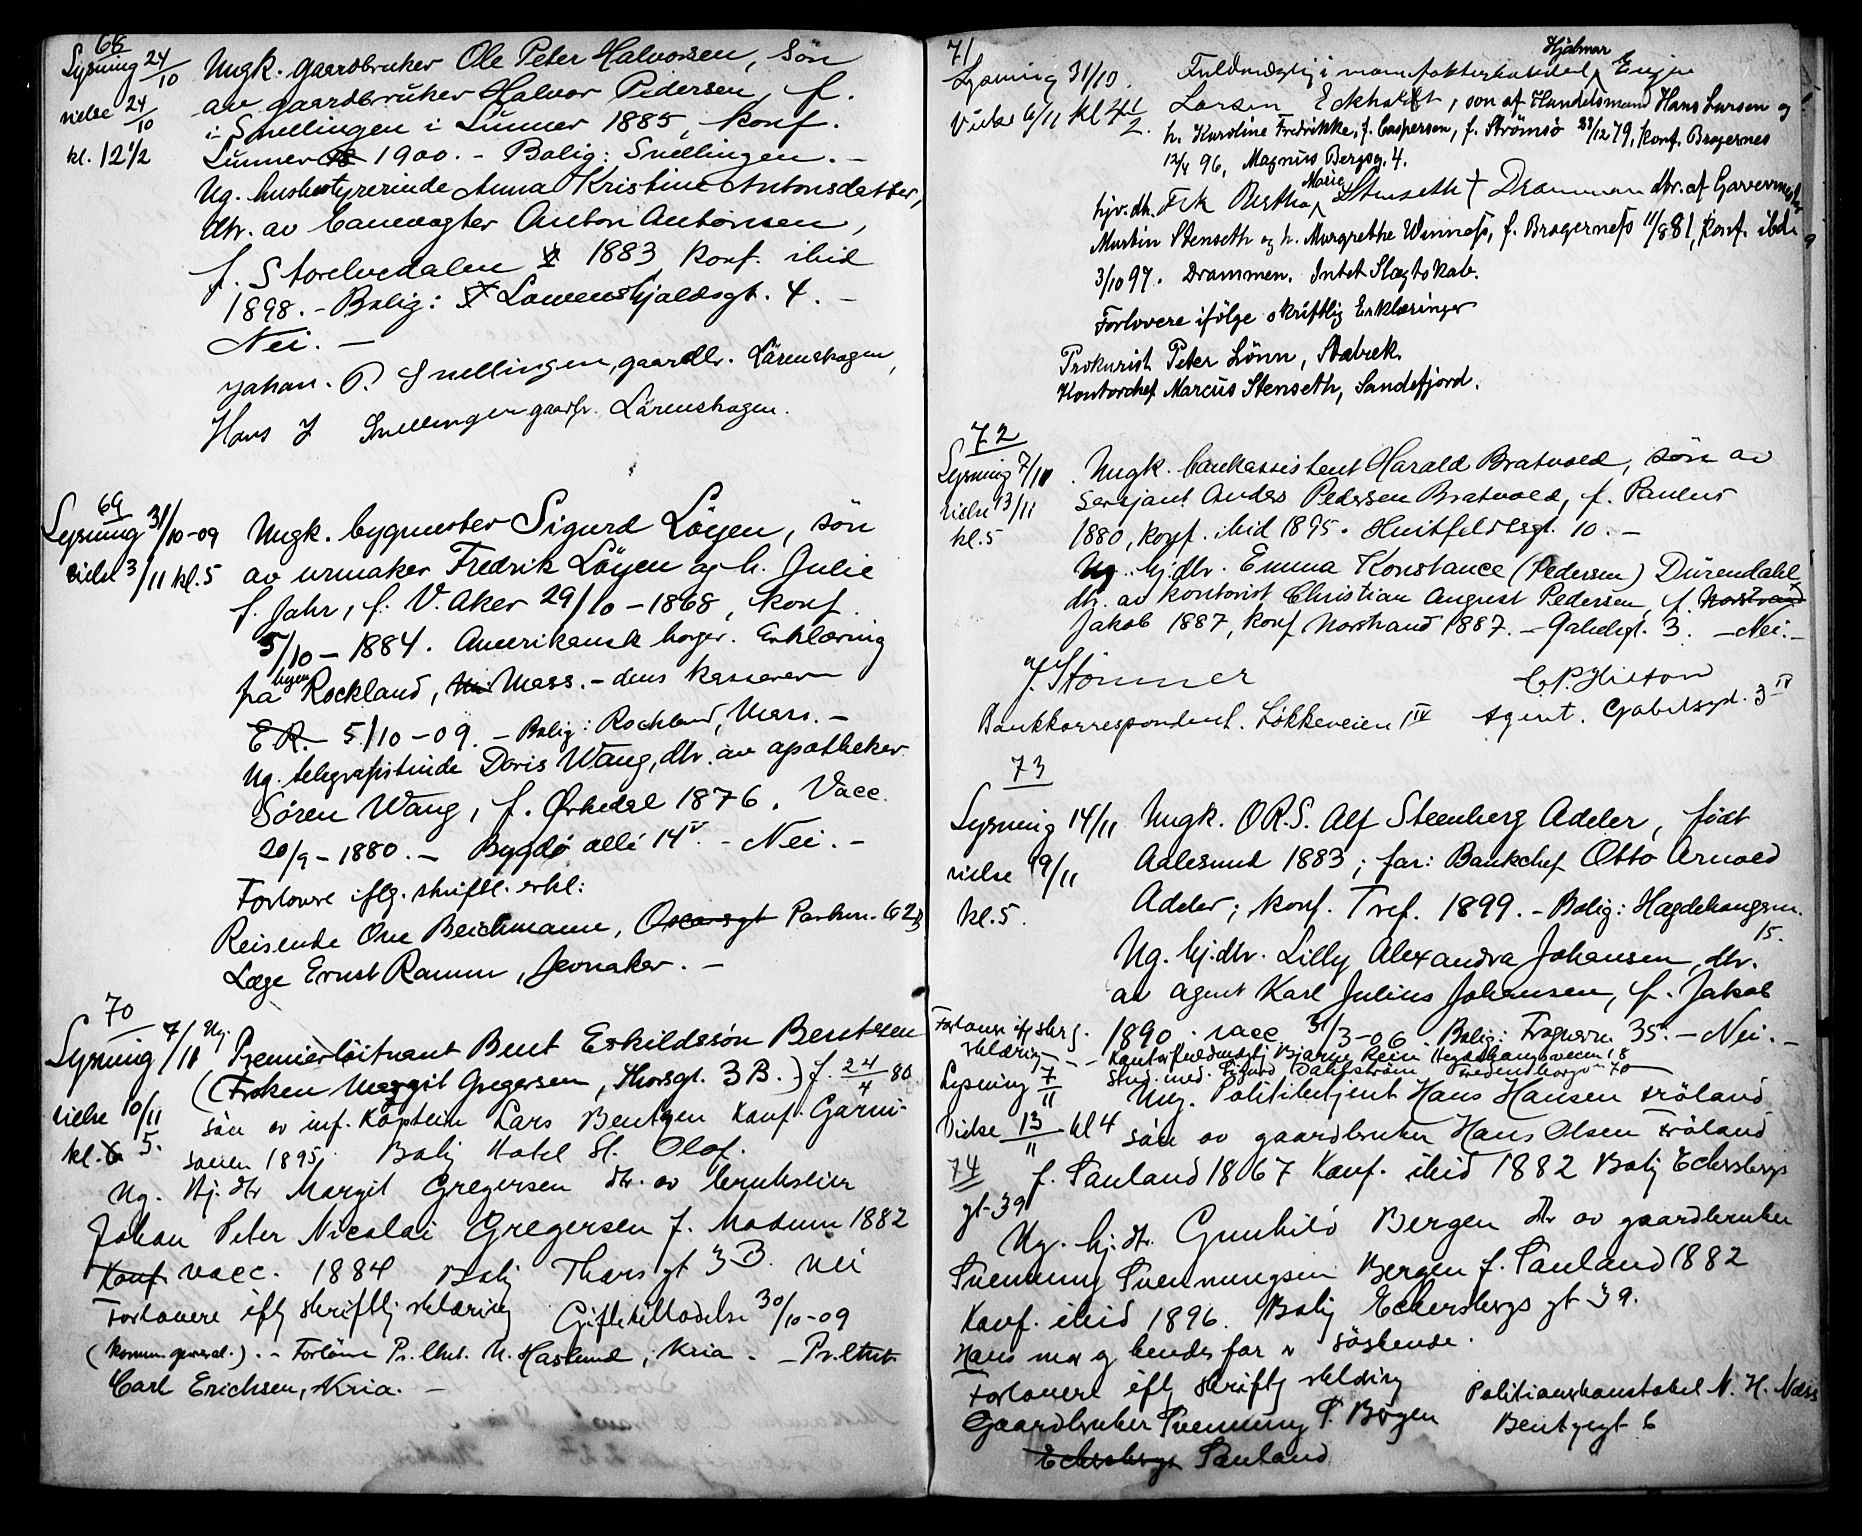 68
Lysning 24/10 Ungk. gaardbruker Ole Peter Halvorsen, søn
vielse 24/10 av gaardbruker Halvor Pedersen, f.
i Snellingen i Lunner 1885, konf.
kl. 12 1/2 Lunner 1900. - Bolig: Snellingen. -
Ug. husbestyrerinde Anna Kristine Antonsdatter,
dtr. av banevogter Anton Antonsen,
f. Storelvedalen 1883 konf. ibid
1898. - Bolig: Løvenskjoldsgt. 4. -
Nei. -
Johan. P. Snellingen, gaardbr. Lårenskogen,
Hans J Snellingen gaardbr. Lårenskogen.
69
Lysning 31/10-09 Ungk. bygmester Sigurd Löyen, sön
vielse 3/11 kl. 5 av urmaker Fredrik Löyen og h. Julie
f. Jahr, f. V. Aker 29/10 - 1868, konf.
5/10 - 1884. Amerikansk borger. Erklæring
fra byen Rockland, Mass. - dens kasserer
E.R. 5/10-09. - Bolig: Rockland, Mass. -
Ug. telegrafistinde Doris Wang, dtr. av apotheker
Sören Wang, f. Ørkedal 1876. Vacc.
20/9 - 1880. - Bygdø allé 14 V. - Nei. -
Forlovere iflg. skriftl. erkl:
Reisende Ove Beichmann, Oscarsgt Parkv. 62
Læge Ernst Ramm, Jevnaker. -
70
Lysning 7/11 Ug. Premierlöitnant Bent Eskildssön Bentzen
(Frøken Margit Gregersen, Thorsgt. 3 B.) f. 24/4 80
vielse 10/11 sön av inf. Kaptein Lars Bentzen Konf. Garni-
kl. 6 5. sonen 1895. Bolig Hotel St. Olaf.
Ug. Hj. dtr Margit Gregersen dtr. av brukseier
Johan Peter Nicolai Gregersen f. Modum 1882
Konf vacc. 1884 Bolig Thorsgt 3 B. nei
Forlovere iflg skriftlig erklæring Giftetilladelse 30/10-09
(komm. general.). - Forlover Pr.ltnt. N. Haslund, Kria. - Pr.ltnt.
Carl Erichsen, Kria. -
71
Lysning 31/10. Fuldmægtig i manufakturhandel Hjalmar Eugen
Vielse 6/11 kl 4 1/2. Larsen Eckhardt, søn af Handelsmand Hans Larsen og
h. Karoline Fredrikke, f. Caspersen, f. Strömsö 23/12 79, konf. Bragernes
12/4 96, Magnus Bergsg. 4.
hjv. dtr. Frk Bertha Marie Stenseth Drammen dtr. af Garvermester
Martin Stenseth og h. Margrethe Wennefs, f. Bragernefs 11/8 81, konf. ibd.
3/10 97. Drammen. Intet Slægtskab.
Forlovere ifölge skriftlig Erklæringer
Prokurist Peter Lönn, Stabæk.
Kontorchef Marcus Stenseth, Sandefjord.
72
Lysning 7/11 Ungk. bankassistent Harald Bratvold, sön av
vielse 13/11 sersjant Anders Pedersen Bratvold, f. Paulus
kl. 5 1880, konf. ibid 1895. Huitfeldtsgt. 10. -
Ug. hj.dtr. Emma Konstance (Pedersen) Dürendahl
dtr. av kontorist Christian August Pedersen, f. Nordstrand
Jakob 1887, konf Nordstrand 1887. - Gabelsgt. 3. - Nei. -
J. Stömner C.P. Hilton
Bankkorrespondent. Løkkeveien 1 IV Agent. Gabelsgd. 3 IV
73
Lysning 14/11 Ungk. O.R.S. Alf Steenberg Adeler, født
vielse 19/11 Aalesund 1883; far: Bankchef Otto Arnold
kl. 5. Adeler; konf. Tref. 1899. - Bolig: Hegdehaugsv.
15.
Ug. hj.dtr. Lilly Alexandra Johansen, dtr.
av agent Karl Julius Johansen, f. Jakob
1890. vacc 31/3-06. Bolig: Frognerv. 35. - Nei. -
Forlovere iflg skriftlig erklæring - Kontorfuldmægtig Bjarne Rein Hegdehaugsveien 18
Stud. med. Sigurd Dahlström Fredensborgv 70
Lysning 7/11 Ung. Politibetjent Hans Hansen Fröland
Vielse 13/11 kl 4 sön av gaardbruker Hans Olsen Fröland
74 f. Sauland 1867 Konf. ibid 1882 Bolig Eckersbergs
gt-39
Ug. hj. dtr. Gunhild Bergen dtr av gaardbruker
Svennung Svennungsen Bergen f. Sauland 1882
Konf. ibid 1896. Bolig Eckersbergs gt 39.
Hans mor og hendes far er søskende.
Forlovere iflg skriftlig erklæring Politioverkonstabel N. H. Næss
Gaardbruker Svennung S. Bergen Bentzegt 6
Eckersbergs Sauland